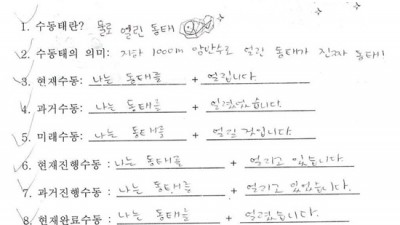 1. 수동태란? 물로 얼린 동태
2. 수동태의 의미: 지하 1000m 암반수로 얼린 동태가 진짜 동태!
3. 현재수동: 나는 동태를 + 얼립니다.
4. 과거수동: 나는 동태를 + 얼렸었습니다.
5. 미래수동: 나는 동태를 + 얼릴 자입니다.
6. 현재진행수동: 나는 동태를 + 얼리고 있습니다.
7. 과거진행수동: 나는 동태를 + 얼리고 있었습니다.
8. 현재완료수동: 나는 동태를 + 얼렸습니다.